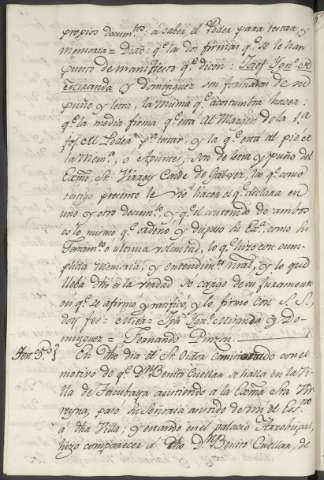 propios docum.tos á saber el Poder para testar, y
memoria = Dixo q.e las dos firmas q.e se le han
puesto de manifiesto q.e dicen: Josef Ign.o
Miranda y Dominguez son formadas de su
puño y letra, la misma q.e acostumbra hacer:
q.e la media firma q.e está al Margen de la 1.a
foja del Poder p.a testar, y la q.e está al pie de
la Mem.a, o Apuntes, son de letra y puño del
Exmô. S.or Virrey Conde de Galvez, la q.e como
testigo presente le vió hacer el q.e declara en
uno y otro docum.to, y q.e el contenido de ambos
es lo mismo q.e ordenó y dispuso su Ex.a como su
Testam.to o ultima voluntad, lo q.e hizo con cum-
plida memoria, y entendim.to nat.l, y q.e lo que
lleva dho es la verdad so cargo de su juramento
en q.e se afirmó y ratificó, y lo firmó con S. S.,
doy fee = Josef Ign.o Miranda y Do-
minguez = Fernando Pinzon.
En dho dia el Sr. Juez Comisionado con el
motivo de q.e D.n Benito Cuellar se halla en la Vi-
lla de Tacubaya asistiendo a la Exmâ. Sra. Vir-
reyna, pasó su Señoria asistido de mi el Ess.no
á dha Villa; y estando en el palacio Arzobispal,
hizo comparecer á dho D.n Benito Cuellar, de